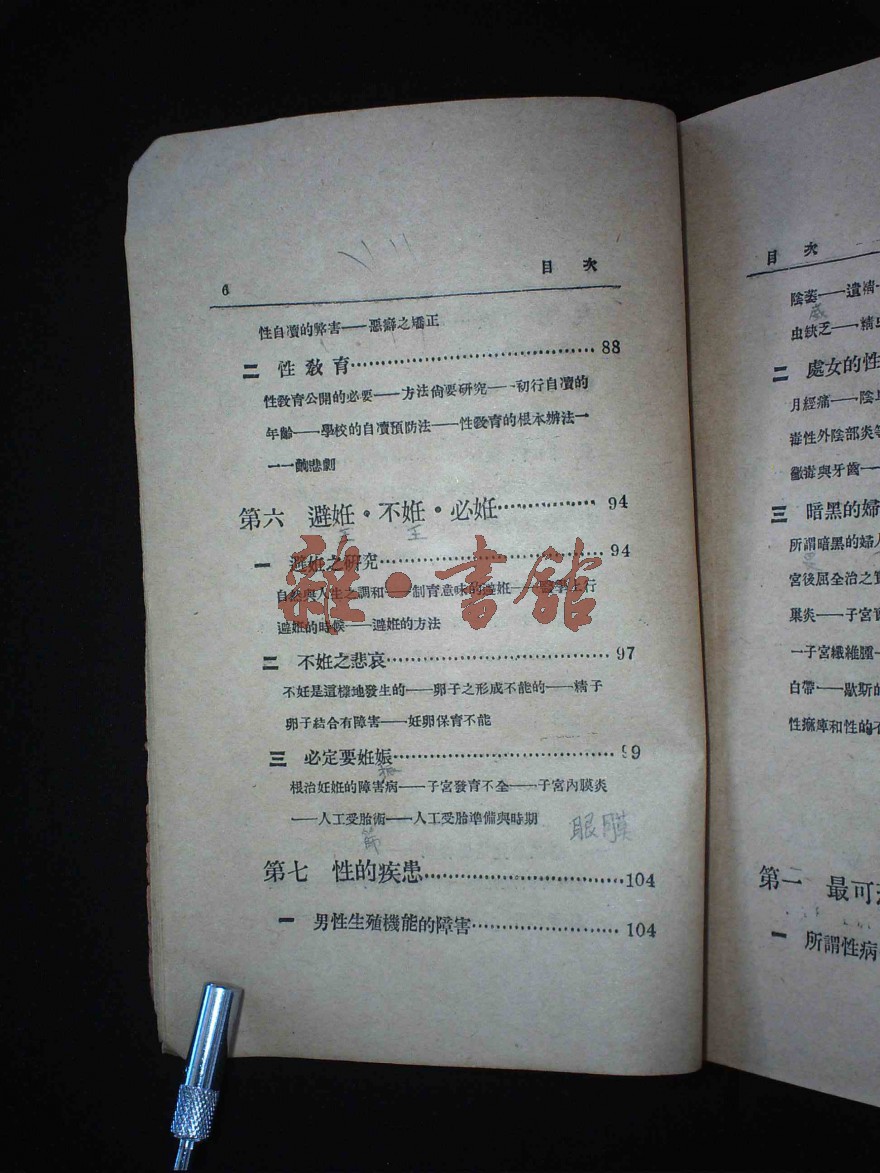 6 目次
性自凟的弊害——惡癖之矯正
二 性敎育 88
性敎育公開的必要——方法尙要硏究——初行自凟的
年齡——學校的自凟預防法——性敎育的根本辦法一
一一齣悲劇
第六 避姙・不姙・必姙 94
一 避姙之硏究 94
自然與人生之調和——制育意味的避姙——醫學上行
避姙的時候——避姙的方法
二 不姙之悲哀 97
不妊是這樣地發生的——卵子之形成不能的——精子
卵子結合有障害——妊卵保育不能
三 必定要姙娠 99
根治妊姙的障害病——子宮發育不全——子宮內膜炎
——人工受胎術——人工受胎準備與時期
眼膜
第七 性的疾患 104
一 男性生殖機能的障害 104
雜・書館
目次
陰萎——遺精
虫缺乏——精
二 處女的性
月經痛——陰
毒性外陰部炎
黴毒與牙齒——
三 暗黑的婦
所謂暗黑的婦
宮後屈全治之
巢炎——子宮
一子宮纖維腫
白帶——歇斯
性痲痺和性的
第一 最可
一 所謂性病